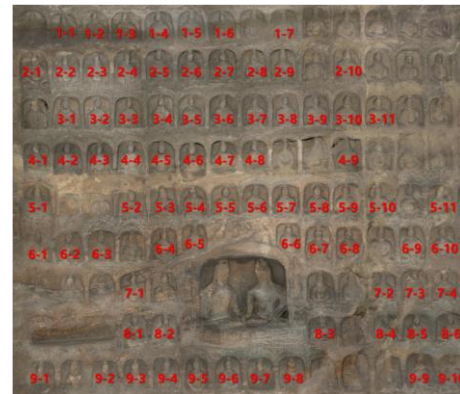 1-1 1-2 1-3 1-4 1-5 1-6 1-7
2-1 2-2 2-3 2-4 2-5 2-6 2-7 2-8 2-9 2-10
3-1 3-2 3-3 3-4 3-5 3-6 3-7 3-8 3-9 3-10 3-11
4-1 4-2 4-3 4-4 4-5 4-6 4-7 4-8 4-9
5-1 5-2 5-3 5-4 5-5 5-6 5-7 5-8 5-9 5-10 5-11
6-1 6-2 6-3 6-4 6-5 6-6 6-7 6-8 6-9 6-10
7-1 7-2 7-3 7-4
8-1 8-2 8-3 8-4 8-5 8-6
9-1 9-2 9-3 9-4 9-5 9-6 9-7 9-8 9-9 9-10